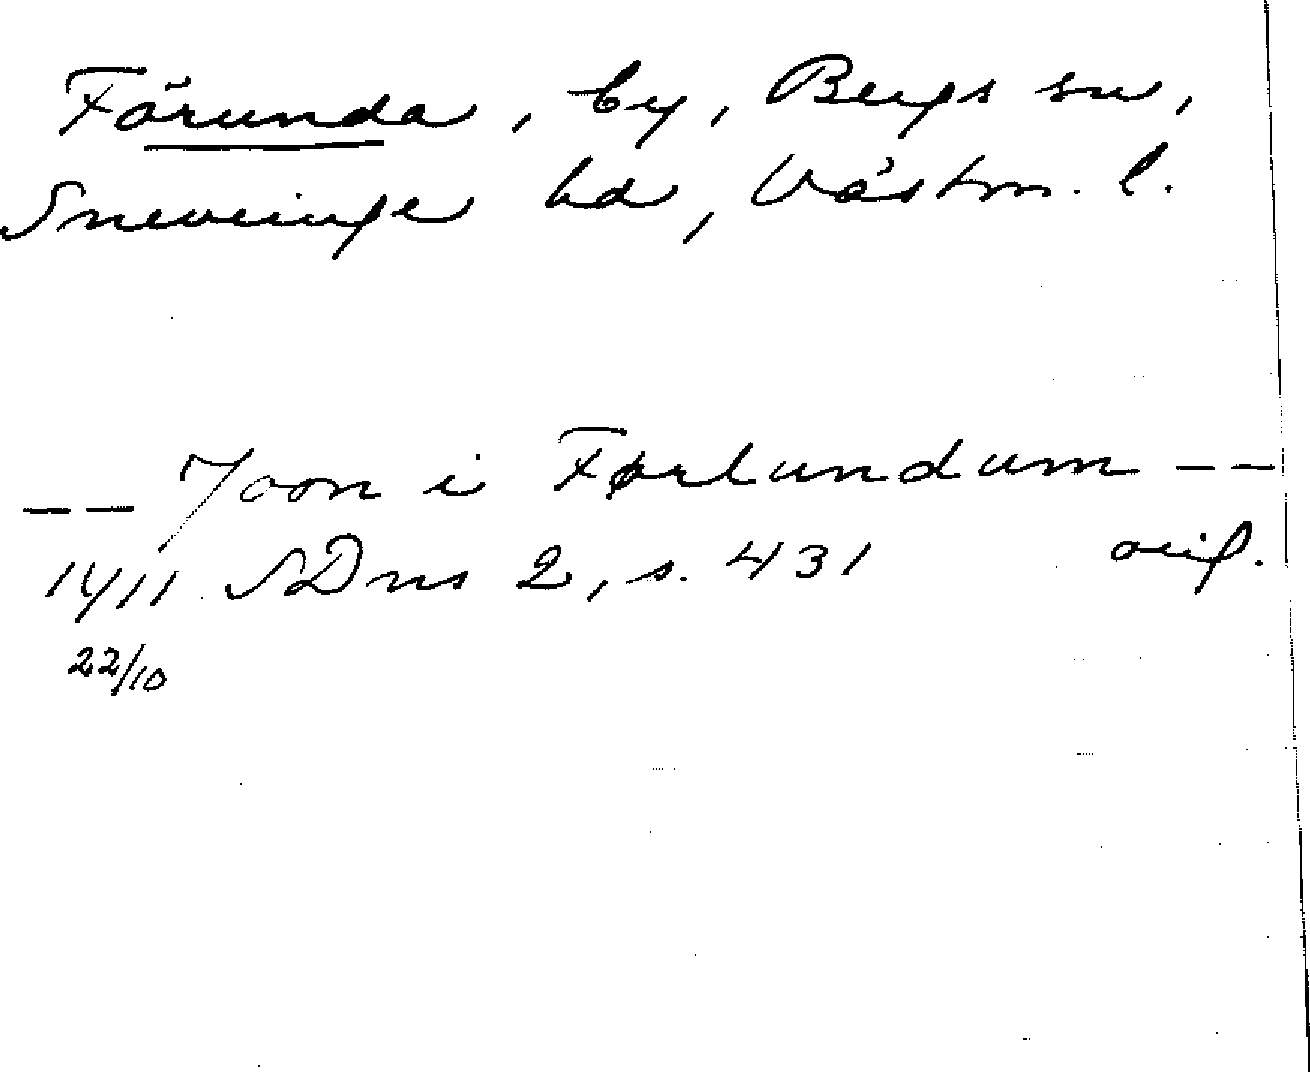 Förunda, by, Bergs sn,
Snevringe hd, Västm. l.
-- Joon i Førlundum --
1411 SDns 2, s. 431 orig.
22/10